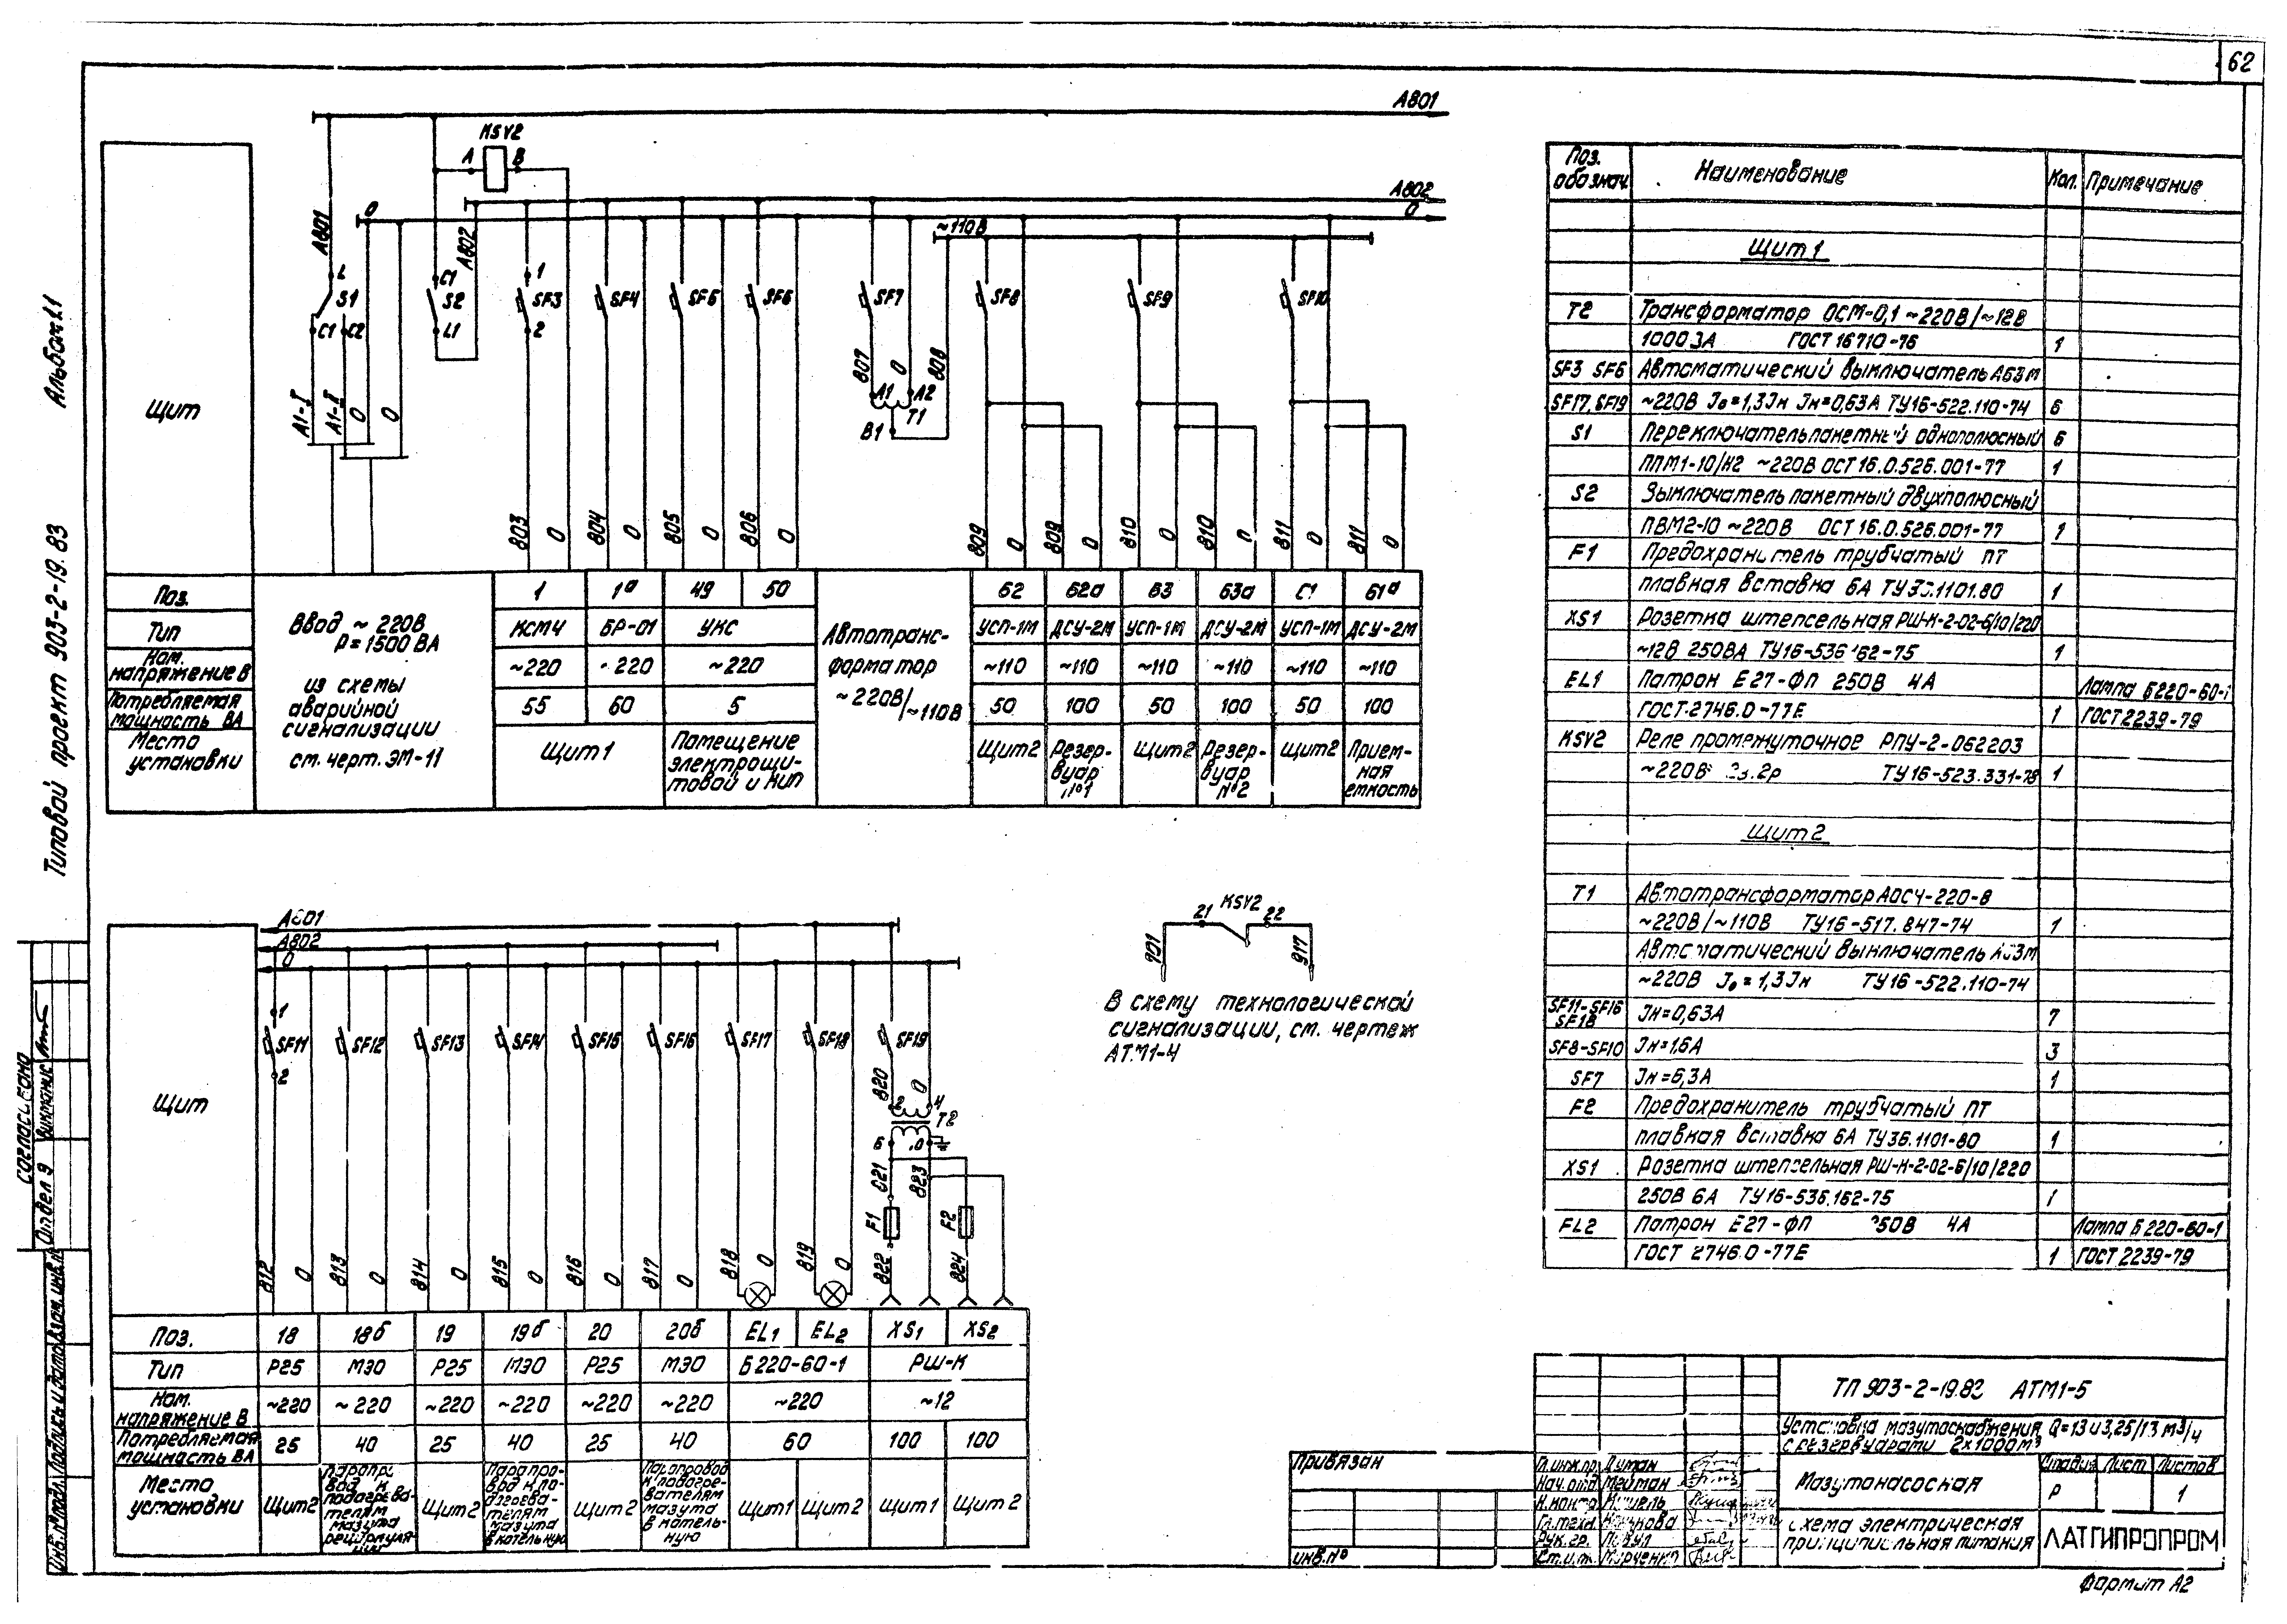 62
Типовой проект 903-2-19.83 Альбом 1.1
A801
KSV2
A B
A802
0
~110В
A801
0
A802
L
S1
C1 C2
C1
S2
L1
1
SF3
2
SF4
SF5
SF6
SF7
SF8
SF9
SF10
807 0 808
A1 A2
T1
B1
A1-I A1-II 0 0
803 0 804 0 805 0 806 0 809 0 809 0 810 0 810 0 811 0 811 0
Щит
Поз.
Тип
Ном. напряжение В
Потребляемая мощность ВА
Место установки
Ввод ~220В
P=1500 ВА
из схемы
аварийной
сигнализации
см. черт. ЭМ-11
1 1а 49 50 62 62а 63 63а 61а
КСМ4 БР-01 УКС УСП-1М ДСУ-2М УСП-1М ДСУ-2М УСП-1М ДСУ-2М
~220 ~220 ~220 ~110 ~110 ~110 ~110 ~110 ~110
55 60 5 50 100 50 100 50 100
Щит 1
Помещение
электрощи-
товой и КИП
Автотранс-
форматор
~220В/~110В
Щит2
Резер-
вуар
№1
Щит2
Резер-
вуар
№2
Щит2
Прием-
ная
емкость
A801
A802
0
1
SF11
2
SF12 SF13 SF14 SF15 SF16 SF17 SF18 SF19
820 0
2 4
T2
821 823
F1 F2
812 0 813 0 814 0 815 0 816 0 817 0 818 0 819 0 822 824
Щит
Поз.
Тип
Ном. напряжение В
Потребляемая мощность ВА
Место установки
18 18б 19 19б 20 20б EL1 EL2 XS1 XS2
Р25 МЭО Р25 МЭО Р25 МЭО Б220-60-1 РШ-К
~220 ~220 ~220 ~220 ~220 ~220 ~220 ~12
25 40 25 40 25 40 60 100 100
Щит2
Щит2
Паропро-
вод к по-
догрева-
телям
мазута
в котельную
Щит2
Паропровод
к подогре-
вателям
мазута
в котель-
ную
Щит1 Щит2 Щит1 Щит2
KSV2
21 22
901 917
В схему технологической
сигнализации, см. чертеж
АТМ1-4
Поз. обознач. Наименование Кол. Примечание
Щит 1
T2 Трансформатор ОСМ-0,1 ~220В/~12В
ГОСТ 16710-76 1
SF3 SF6 Автоматический выключатель А63М
SF17, SF19 ~220В Jо=1,3Jн Jн=0,63А ТУ16-522.110-74 6
S1 Переключатель пакетный однополюсный 6
ППМ1-10/Н2 ~220В ОСТ 16.0.526.001-77 1
S2 Выключатель пакетный двухполюсный
ПВМ2-10 ~220В ОСТ 16.0.526.001-77 1
F1 Предохранитель трубчатый ПТ
плавкая вставка 6А ТУ36.1101.80 1
XS1 Розетка штепсельная РШ-К-2-02-6/10/220
~12В 250ВА ТУ16-536.162-75 1
EL1 Патрон Е27-ФП 250В 4А Лампа Б220-60-1
ГОСТ-2746.0-77Е 1 ГОСТ 2239-79
KSV2 Реле промежуточное РПУ-2-062203
~220В 2р ТУ16-523.331-78 1
Щит 2
T1 Автотрансформатор АОСЧ-220-8
~220В/~110В ТУ16-517.847-74 1
Автоматический выключатель А63М
~220В Jо=1,3Jн ТУ16-522.110-74
SF11-SF16 SF18 Jн=0,63А 7
SF8-SF10 Jн=1,6А 3
SF7 Jн=6,3А 1
F2 Предохранитель трубчатый ПТ
плавкая вставка 6А ТУ36.1101-80 1
XS1 Розетка штепсельная РШ-К-2-02-6/10/220
250В 6А ТУ16-536.162-75 1
EL2 Патрон Е27-ФП 250В 4А Лампа Б220-60-1
ГОСТ 2746.0-77Е 1 ГОСТ 2239-79
ТП 903-2-19.83 АТМ1-5
Установка мазутоснабжения Q=13 и 3,25/13 м³/ч
с резервуарами 2х1000м³
Мазутонасосная
Стадия Лист Листов
Р 1
Схема электрическая
принципиальная питания
ЛАТГИПРОПРОМ
Формат А2
Привязан
Инв.№
Гл.инж.пр. Думан
Нач.отд. Мейман
Н.контр.
Гл.техн.
Рук.гр.
Ст.инж. Марченко
Согласовано
Отдел 9
Инв.№подл. Подпись и дата Взам.инв.№